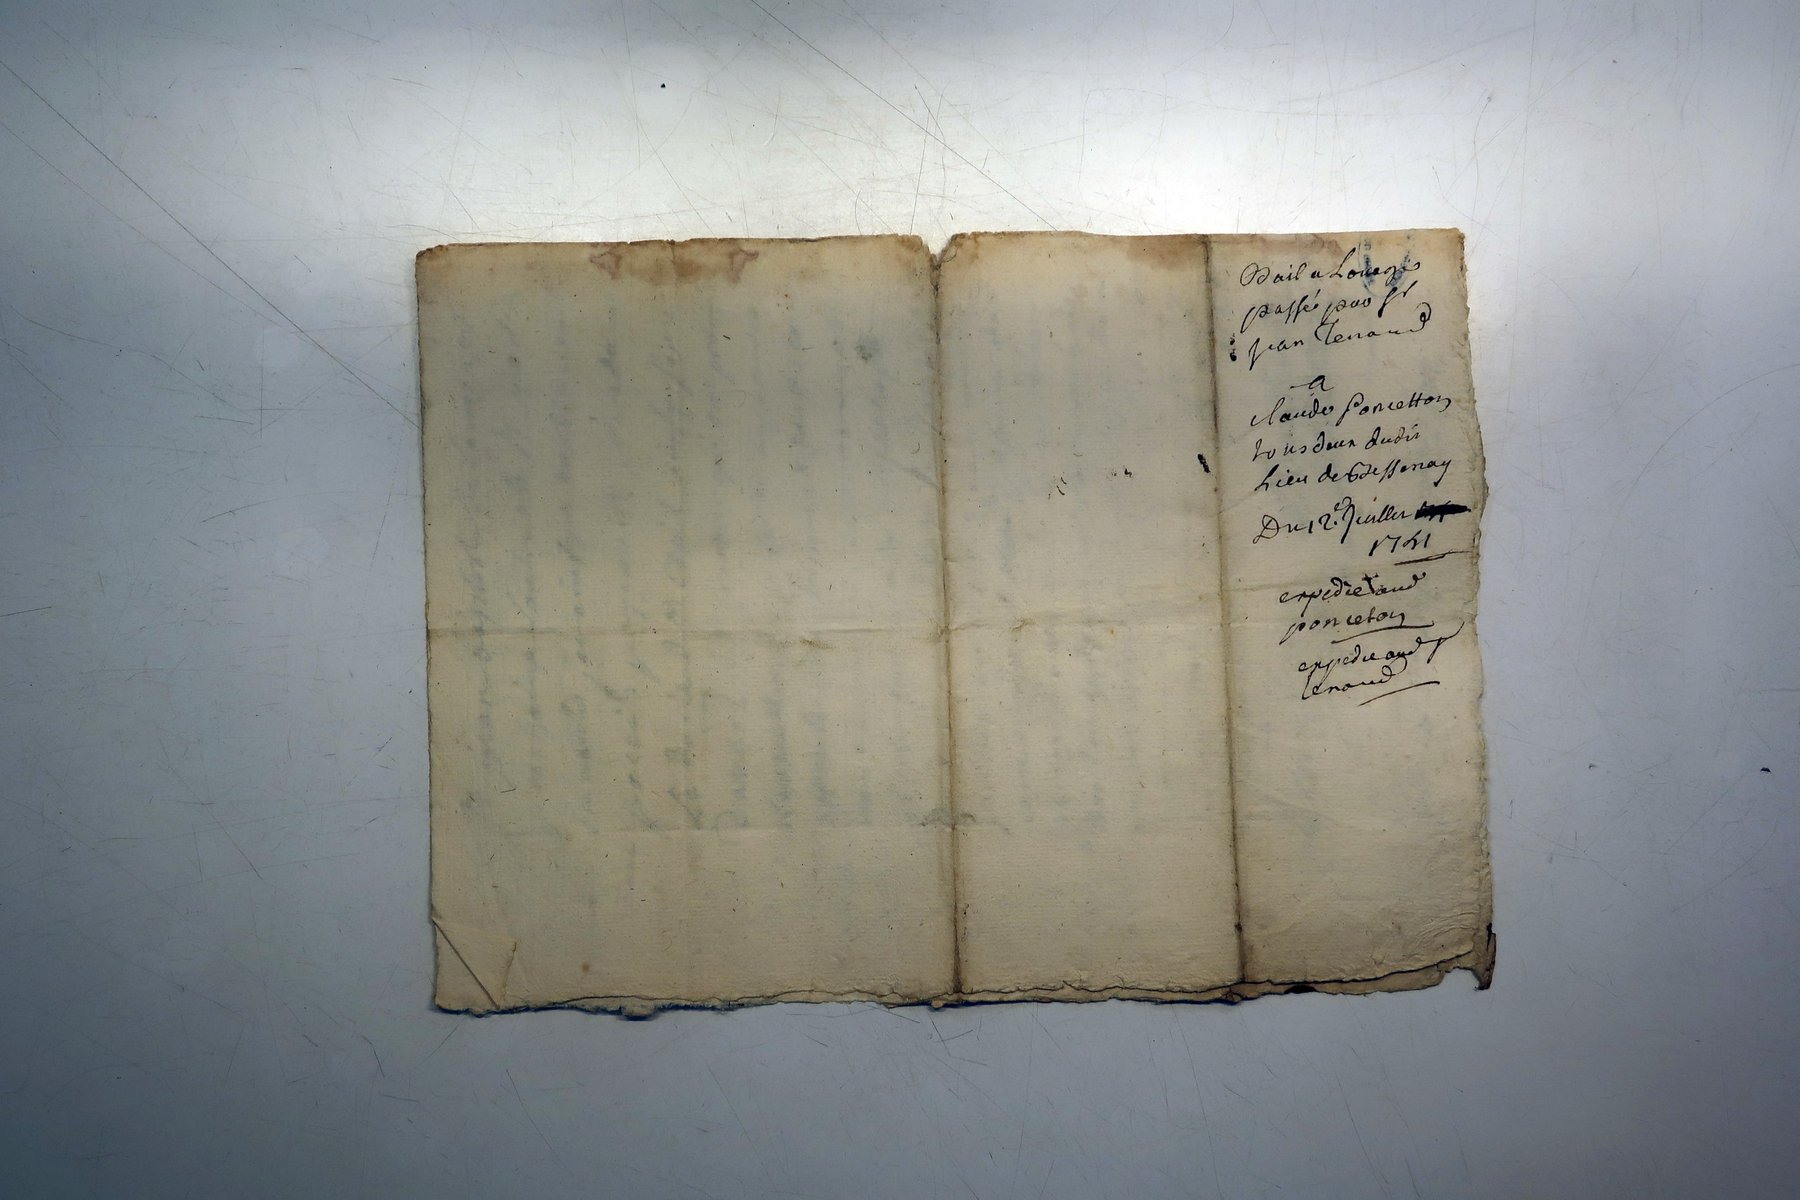 Bail a Louage
passé par Sr
jean Renaud
a
claude poncetton
tous deux dudit
Lieu de Bessenay
Du 12e Juillet
1741
expedié aud
ponceton
expedie aud Sr
Renaud